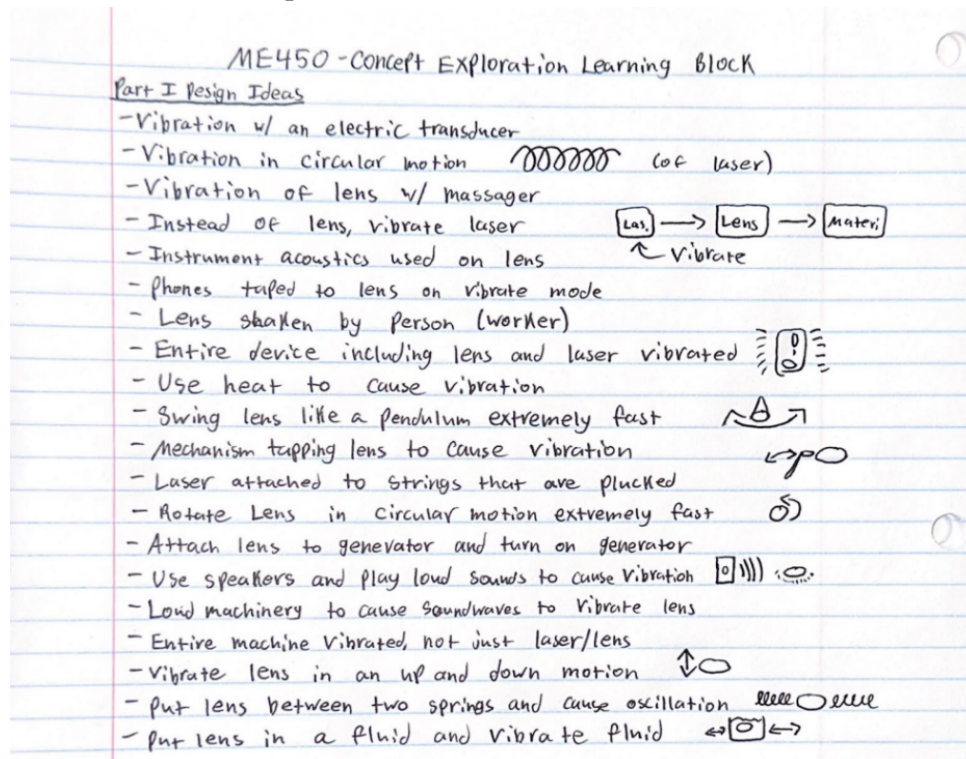 ME450 - Concept Exploration Learning Block
Part I Design Ideas
- Vibration w/ an electric transducer
- Vibration in circular motion (of laser)
- Vibration of lens w/ massager
- Instead of lens, vibrate laser Las. Lens Materi
- Instrument acoustics used on lens Vibrate
- Phones taped to lens on vibrate mode
- Lens shaken by person (worker)
- Entire device including lens and laser vibrated
- Use heat to cause vibration
- Swing lens like a pendulum extremely fast
- Mechanism tapping lens to cause vibration
- Laser attached to strings that are plucked
- Rotate Lens in circular motion extremely fast
- Attach lens to generator and turn on generator
- Use speakers and play loud sounds to cause vibration
- Loud machinery to cause soundwaves to vibrate lens
- Entire machine vibrated, not just laser/lens
- Vibrate lens in an up and down motion
- Put lens between two springs and cause oscillation
- Put lens in a fluid and vibrate fluid